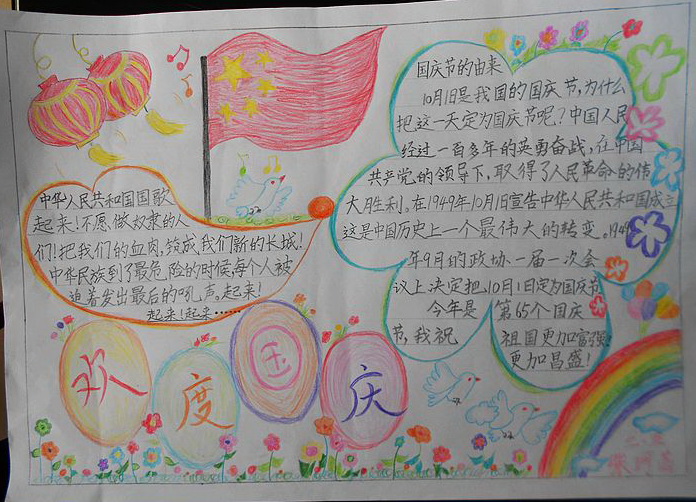 中华人民共和国国歌
起来!不愿做奴隶的人
们!把我们的血肉,筑成我们新的长城!
中华民族到了最危险的时候,每个人被
迫着发出最后的吼声。起来!
起来!起来……
国庆节的由来
10月1日是我国的国庆节,为什么
把这一天定为国庆节呢?中国人民
经过一百多年的英勇奋战,在中国
共产党的领导下,取得了人民革命的伟
大胜利。在1949年10月1日宣告中华人民共和国成立
这是中国历史上一个最伟大的转变。1949
年9月的政协一届一次会
议上决定把10月1日定为国庆节
今年是 第65个国庆
节,我祝 祖国更加富强!
更加昌盛!
欢度国庆